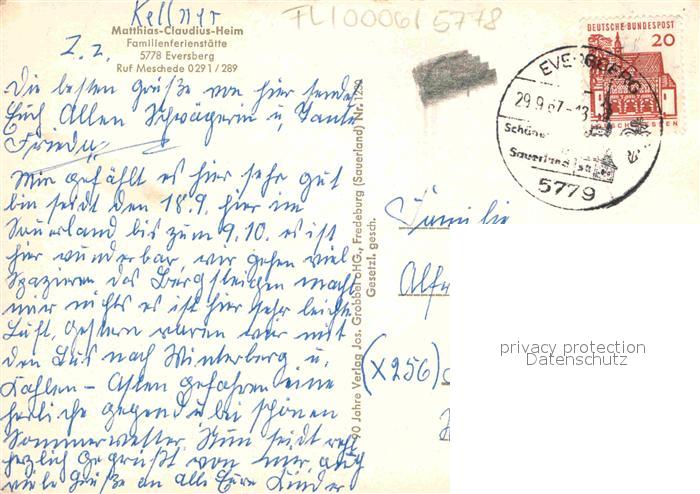 Kellner
TL100061 5778
Matthias-Claudius-Heim
Familienferienstätte
5778 Eversberg
Ruf Meschede 0291/289
Z. Z.
Die besten Grüße von hier sendet
Euch Allen Schwägerin u, Tante
Frieda
Mir gefählt es hier sehr gut
bin seidt den 18.9. hier im
Sauerland bis zum 9.10. es ist
hier wunderbar wir gehen viel
Spazieren das Bergsteigen macht
mir nichts es ist hier sehr leichte
Luft, gestern waren wir mit
den Bus nach Winterberg u,
Kahlen - Asten gefahren eine
herliche gegend u bei schönen
Sommerwetter. Nun seidt recht
herzlich gegrüßt von mir, auch
viele Grüße an alle Eure Kinder
90 Jahre Verlag Jos. Grobbel oHG., Fredeburg (Sauerland) Nr. 1280
Gesetzl. gesch.
DEUTSCHE BUNDESPOST
20
EVERSBERG
29.9.67-18
Schöne
Sauerland
5779
Familie
Alfr
(X256)
privacy protection
Datenschutz